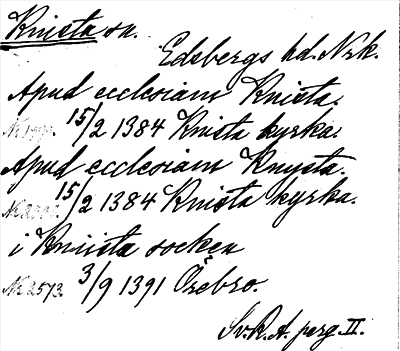 Knista sn.
Edsbergs hd. Nrk.
Apud ecclesiam Knista.
15/2 1384 Knista kyrka.
Apud ecclesiam Knysta.
15/2 1384 Knista kyrka.
i Kniista socken
N. 2573. 3/9 1391 Örebro.
Sv. R. A. perg. II.